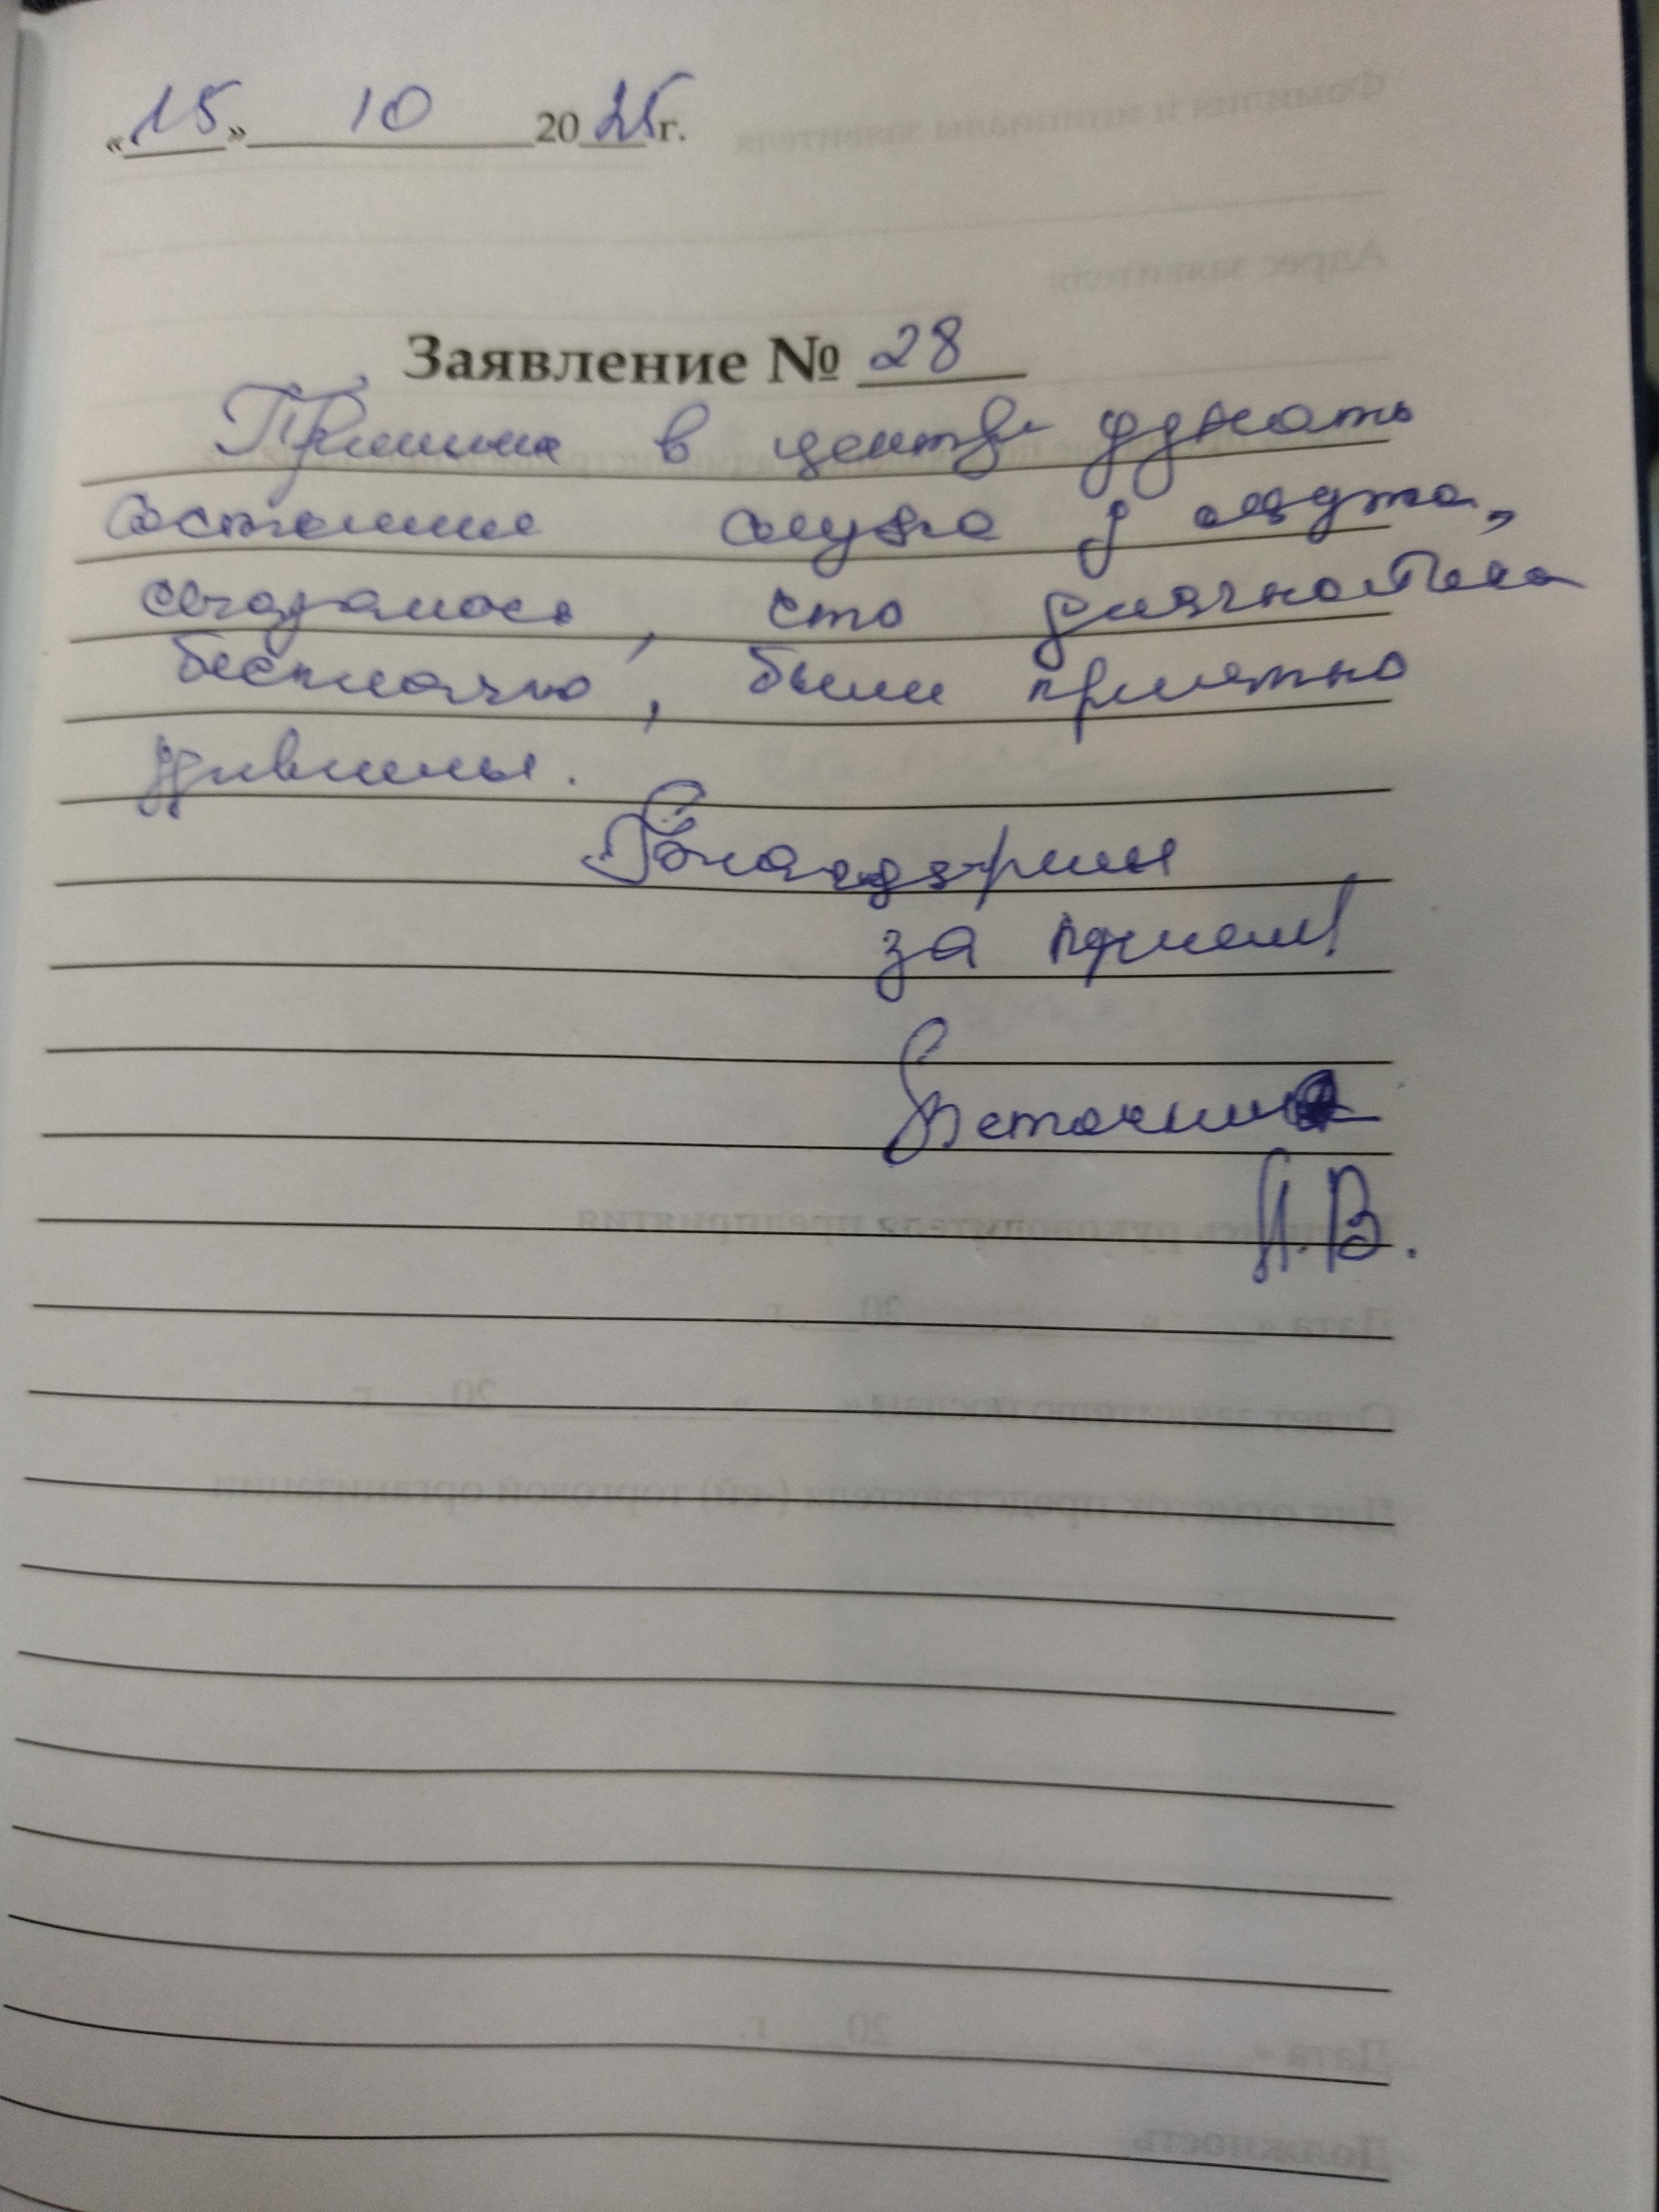 «15» 10 2025г.
Заявление № 28
Пришла в центр узнать
состояние слуха у мужа,
оказалось, что диагностика
бесплатно, были приятно
удивлены.
Благодарим
за прием!
И.В.